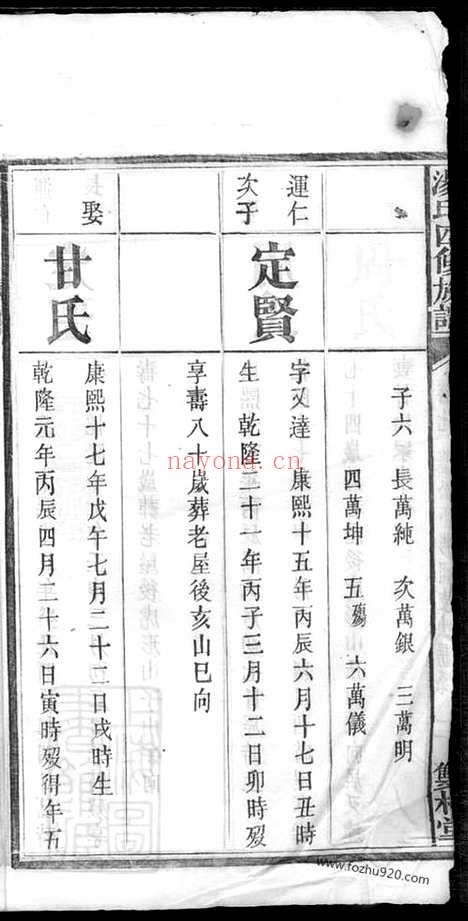 子六 長萬純 次萬銀 三萬明
四萬坤 五殤 六萬儀
運仁
次子
定賢
字又達 康熙十五年丙辰六月十七日丑時
生 乾隆二十一年丙子三月十二日卯時歿
享壽八十歲葬老屋後亥山巳向
娶
甘氏
康熙十七年戊午七月二十二日戌時生
乾隆元年丙辰四月二十六日寅時歿得年五
nayona.cn
www.fozhu920.com